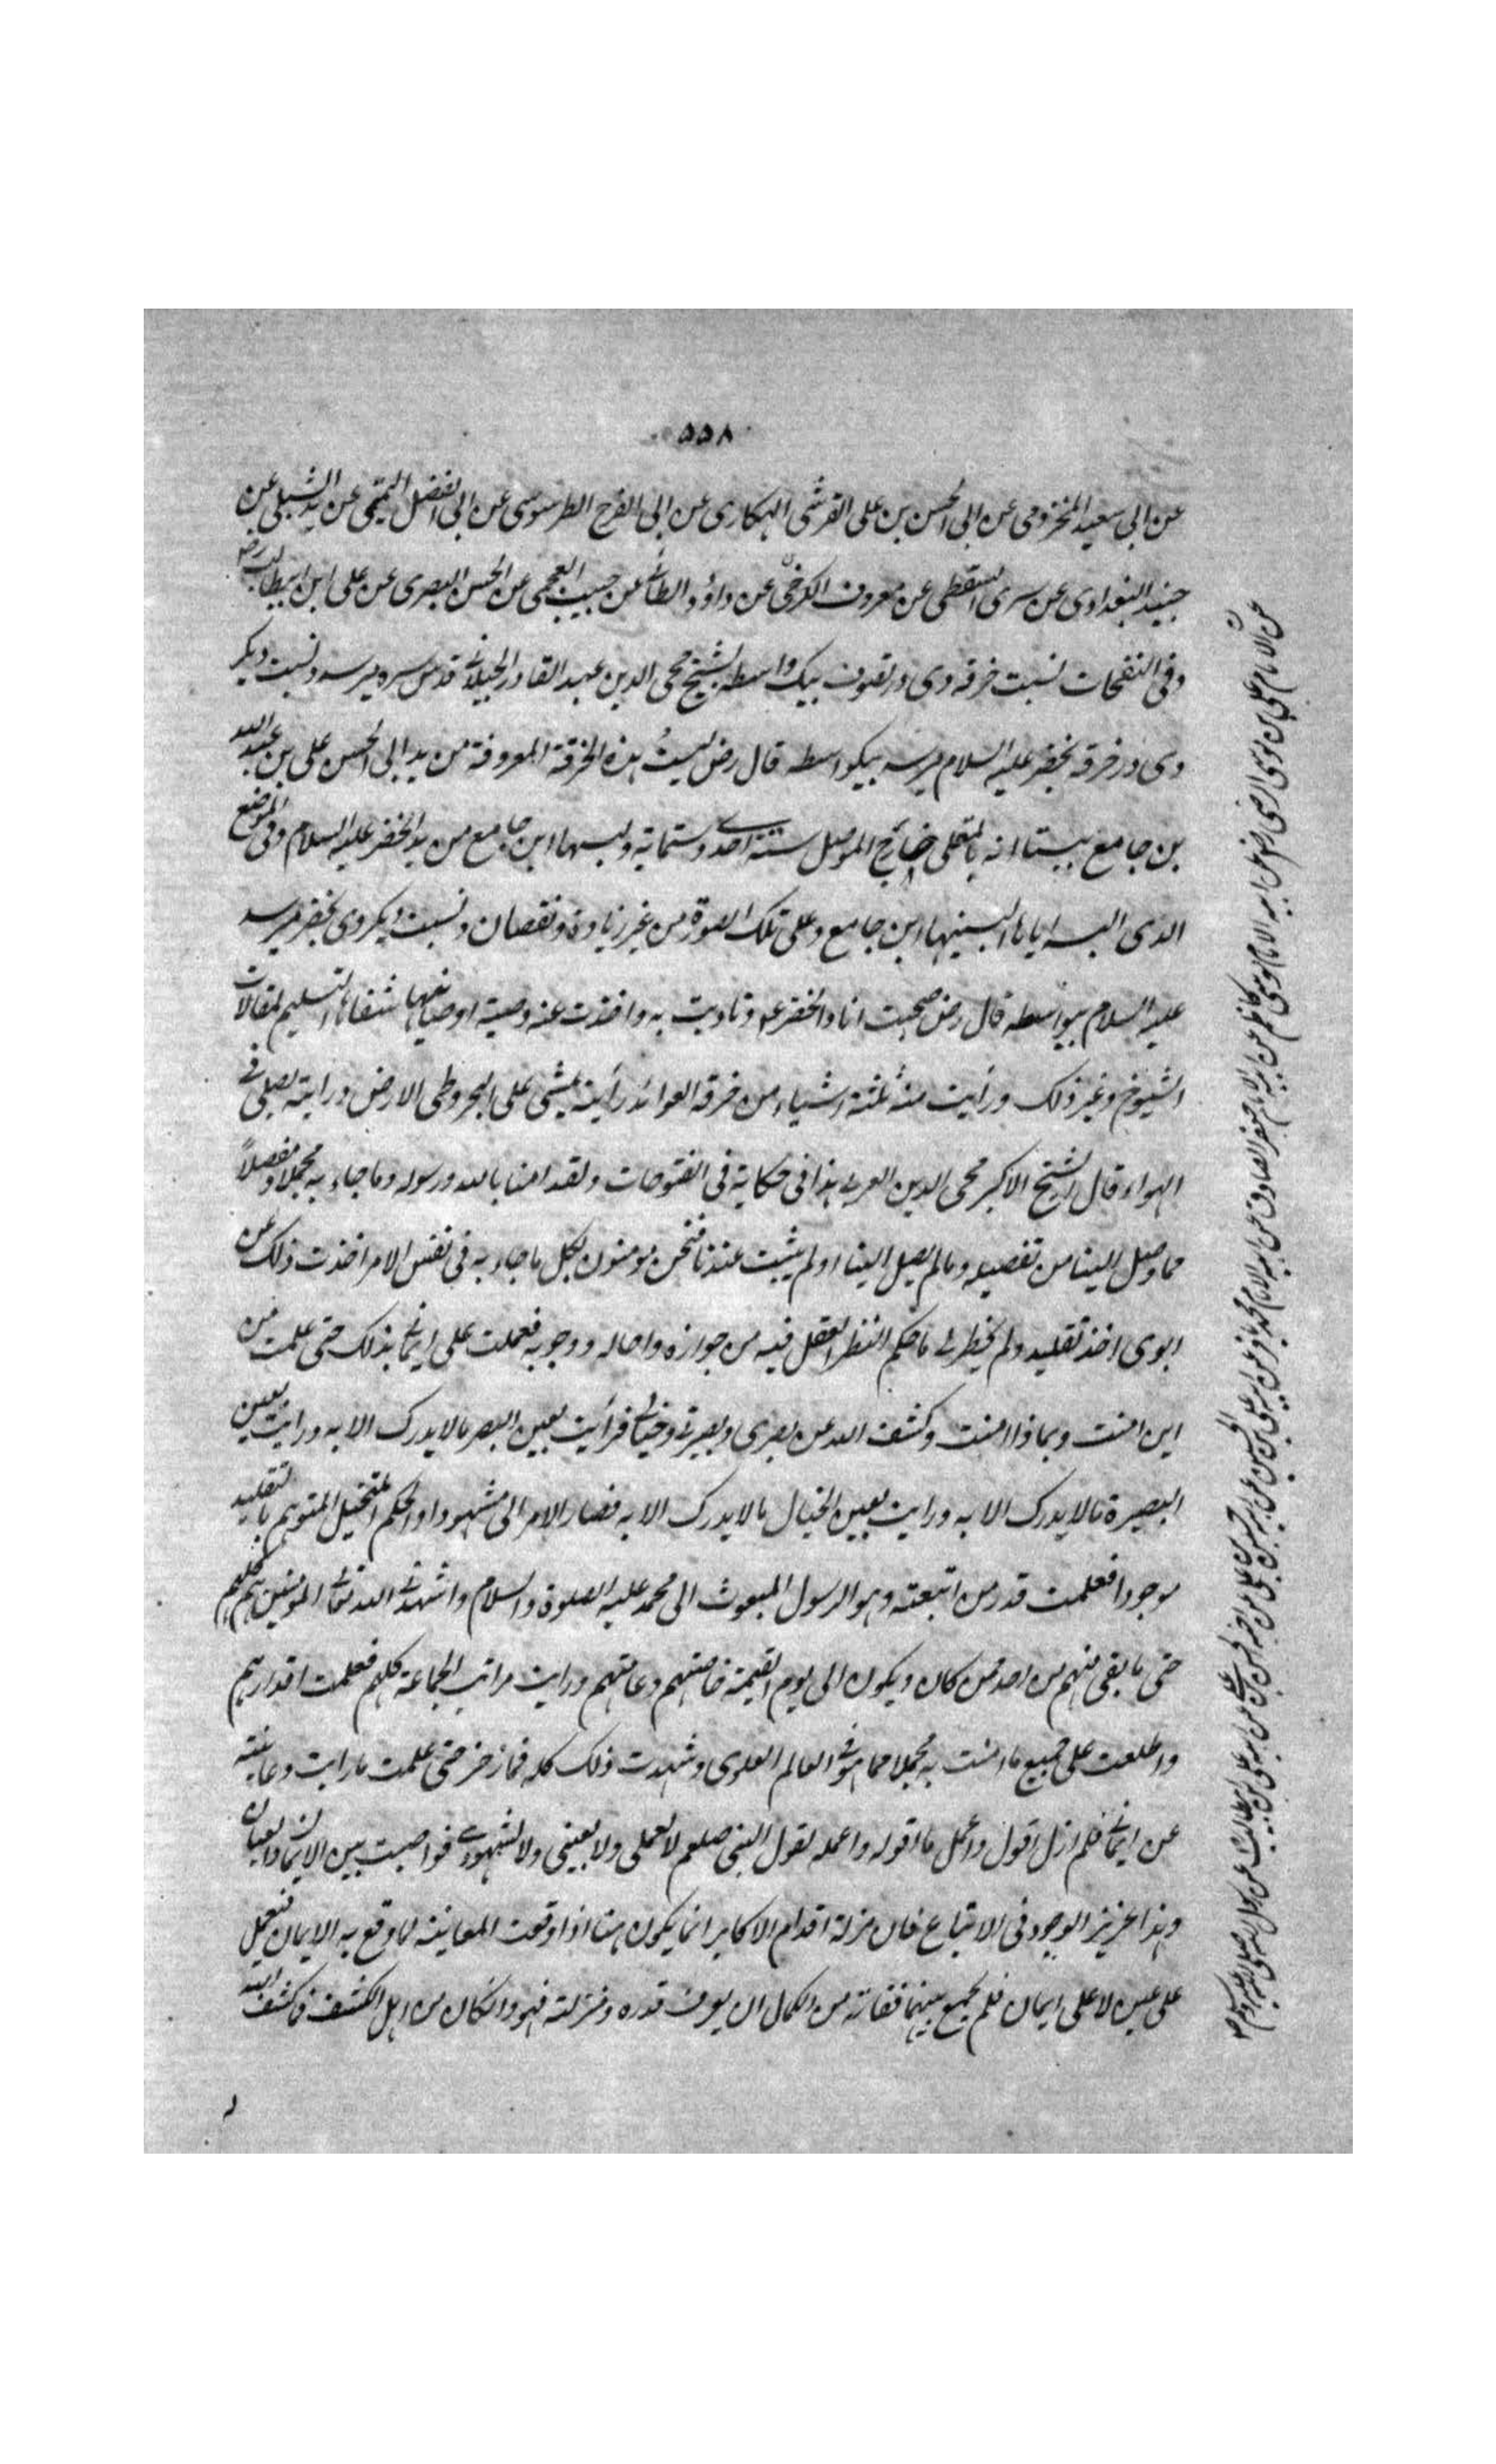 ۵۵۸
عن ابی سعید المخزومی عن ابی الحسن بن علی القرشی الهکاری عن ابی الفرح الطرسوسی عن ابی الفضل التمیمی عن ید الشبلی عن
جنید البغدادی عن سری السقطی عن معروف الکرخی عن داؤد الطائی عن حبیب العجمی عن الحسن البصری عن علی ابن ابیطالب رض
وفی النفحات نسبت خرقه وی در تصوف بیک واسطه بشیخ محی الدین عبد القادر الجیلانی قدس سره میرسد ونسبت دیکر
وی در خرقه بخضر علیه السلام میرسد بیکواسطه قال رض لبستُ هذه الخرقة المعروفة من ید ابی الحسن علی بن عبد الله
بن جامع ببستانه بالمقلی خارج الموصل سنة احدی وستمایة ولبسها ابن جامع من ید الخضر علیه السلام وفی الموضع
الذی البسه ایاها البسنیها ابن جامع وعلی تلک الصورة من غیر زیادة ونقصان ونسبت دیکر وی بخضر میرسد
علیه السلام بیواسطه قال رض صحبت انا والخضر عم وتادبت به واخذت عنه وصیة اوصانیها شفاها التسلیم لمقالات
الشیوخ وغیر ذلک ورأیت منه ثلثة اشیاء من خرق العوائد رأیته یمشی علی البحر وطی الارض ورایته یصلی فی
الهواء قال الشیخ الاکبر محی الدین العربی هذا فی حکایة فی الفتوحات ولقد امنا بالله ورسوله وما جاء به مجملا ومفصلاً
مما وصل الینا من تفصیله وما لم یصل الینا او لم یثبت عندنا فنحن مومنون بکل ما جاء به فی نفس الامر اخذت ذلک عن
ابوی اخذ تقلید ولم یخطر لی ما حکم النظر العقلی فیه من جوازه واحاله ووجوبه فعملت علی ایمانی بذلک حتی علمت من
این امنت وبماذا امنت وکشف الله عن بصری وبصیرتی وخیالی فرأیت بعین البصر ما لا یدرک الا به ورایت بعین
البصیرة ما لا یدرک الا به ورایت بعین الخیال ما لا یدرک الا به فصار الامر الی مشهودا والحکم المتخیل المتوهم بالتقلید
موجودا فعلمت قدر من اتبعته وهو الرسول المبعوث الی محمد علیه الصلوة والسلام واشهدنی الله تعالی المومنین بهم کلهم
حتی ما بقی منهم من احد ممن کان ویکون الی یوم القیمة خاصتهم وعامتهم ورایت مراتب الجماعة کلهم فعلمت اقدارهم
واطلعت علی جمیع ما امنت به مجملا مما هو فی العالم العلوی وشهدت ذلک کله فما زحزحنی علمت ما رایت وعاینته
عن ایمانی فلم ازل اقول واعمل ما اقوله واعمله لقول النبی صلعم لا لعملی ولا لعینی ولا لشهودی فواصبت بین الایمان والعیان
وهذا عزیز الوجود فی الاتباع فان مزلة اقدام الاکابر انما یکون هنا اذا وقعت المعاینة لما وقع به الایمان فیعمل
علی عین لا علی ایمان فلم یجمع بینهما ففاته من الکمال ان یعرف قدره ومنزلته فهو وان کان من اهل الکشف فما کشف الله
عن الامام علی بن موسی الرضی عن ابیه الامام موسی کاظم عن ابیه الامام جعفر الصادق عن ابیه الامام محمد باقر عن ابیه